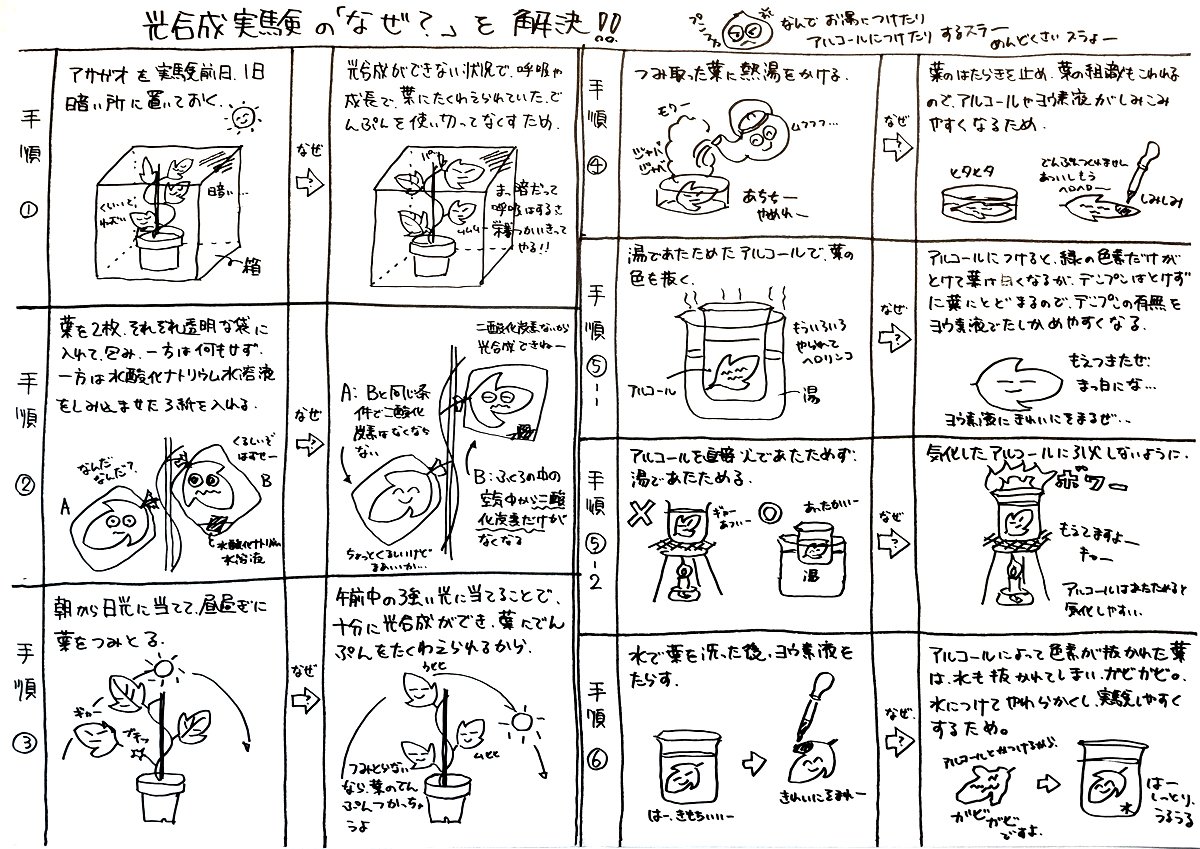 光合成実験の「なぜ?」を解決!!
プンスカ
なんでお湯につけたり
アルコールにつけたりするスラー
めんどくさいスラょー
手順①
アサガオを実験前日、1日
暗い所に置いておく。
暗い…
箱
なぜ
光合成ができない状況で、呼吸や
成長で、葉にたくわえられていた、で
んぷんを使い切ってなくすため。
まっ暗だって
呼吸はするさ
栄養つかいきって
やる!!
手順②
葉を2枚、それぞれ透明な袋に
入れて、包み、一方は何もせず、
一方は水酸化ナトリウム水溶液
をしみ込ませたろ紙を入れる。
なんだ
なんだ?
A
くるしいぞ
はずせー
B
水酸化ナトリウム
水溶液
なぜ
二酸化炭素ないから
光合成できねー
A:Bと同じ条
件で二酸化
炭素はなくなら
ない
B:ふくろの中の
空気中から二酸
化炭素だけが
なくなる
ちょっとくるしいけど
まあいいか…
手順③
朝から日光に当てて、昼過ぎに
葉をつみとる。
ギャー
ブチッ
なぜ
午前中の強い光に当てることで、
十分に光合成ができ、葉にでん
ぷんをたくわえられるから。
うヒヒ
ムヒヒ
つみとらない
なら、葉のでん
ぷんつかっちゃ
うよ
手順④
つみ取った葉に熱湯をかける。
モワー
ムフフフ…
ジャバ
ジャバ
あちちー
やめれー
なぜ
葉のはたらきを止め、葉の組織もこわれる
ので、アルコールやヨウ素液がしみこみ
やすくなるため。
ヒタヒタ
でんぷんつくれません
あついしもう
ヘロヘロー
しみしみ
手順⑤-1
湯であたためたアルコールで、葉の
色を抜く。
もういろいろ
やられて
ヘロリンコ
アルコール
湯
なぜ
アルコールにつけると、緑の色素だけが
とけて葉は白くなるが、デンプンはとけず
に葉にとどまるので、デンプンの有無を
ヨウ素液でたしかめやすくなる。
もえつきたぜ…
まっ白にな…
ヨウ素液にきれいにそまるぜ…
手順⑤-2
アルコールを直接火であたためず、
湯であたためる。
ギャー
あつぃー
あったかいー
湯
なぜ
気化したアルコールに引火しないように。
ボワー
もえてますよー
キャー
アルコールはあたためると
気化しやすい。
手順⑥
水で葉を洗った後、ヨウ素液を
たらす。
はー、きもちいいー
きれいにそまれー
なぜ
アルコールによって色素が抜かれた葉
は、水も抜かれてしまい、ガビガビ。
水につけてやわらかくし、実験しやすく
するため。
アルコールとかつけるから、
ガビガビ
ですよ。
はー
しっとり、
うるうる
水